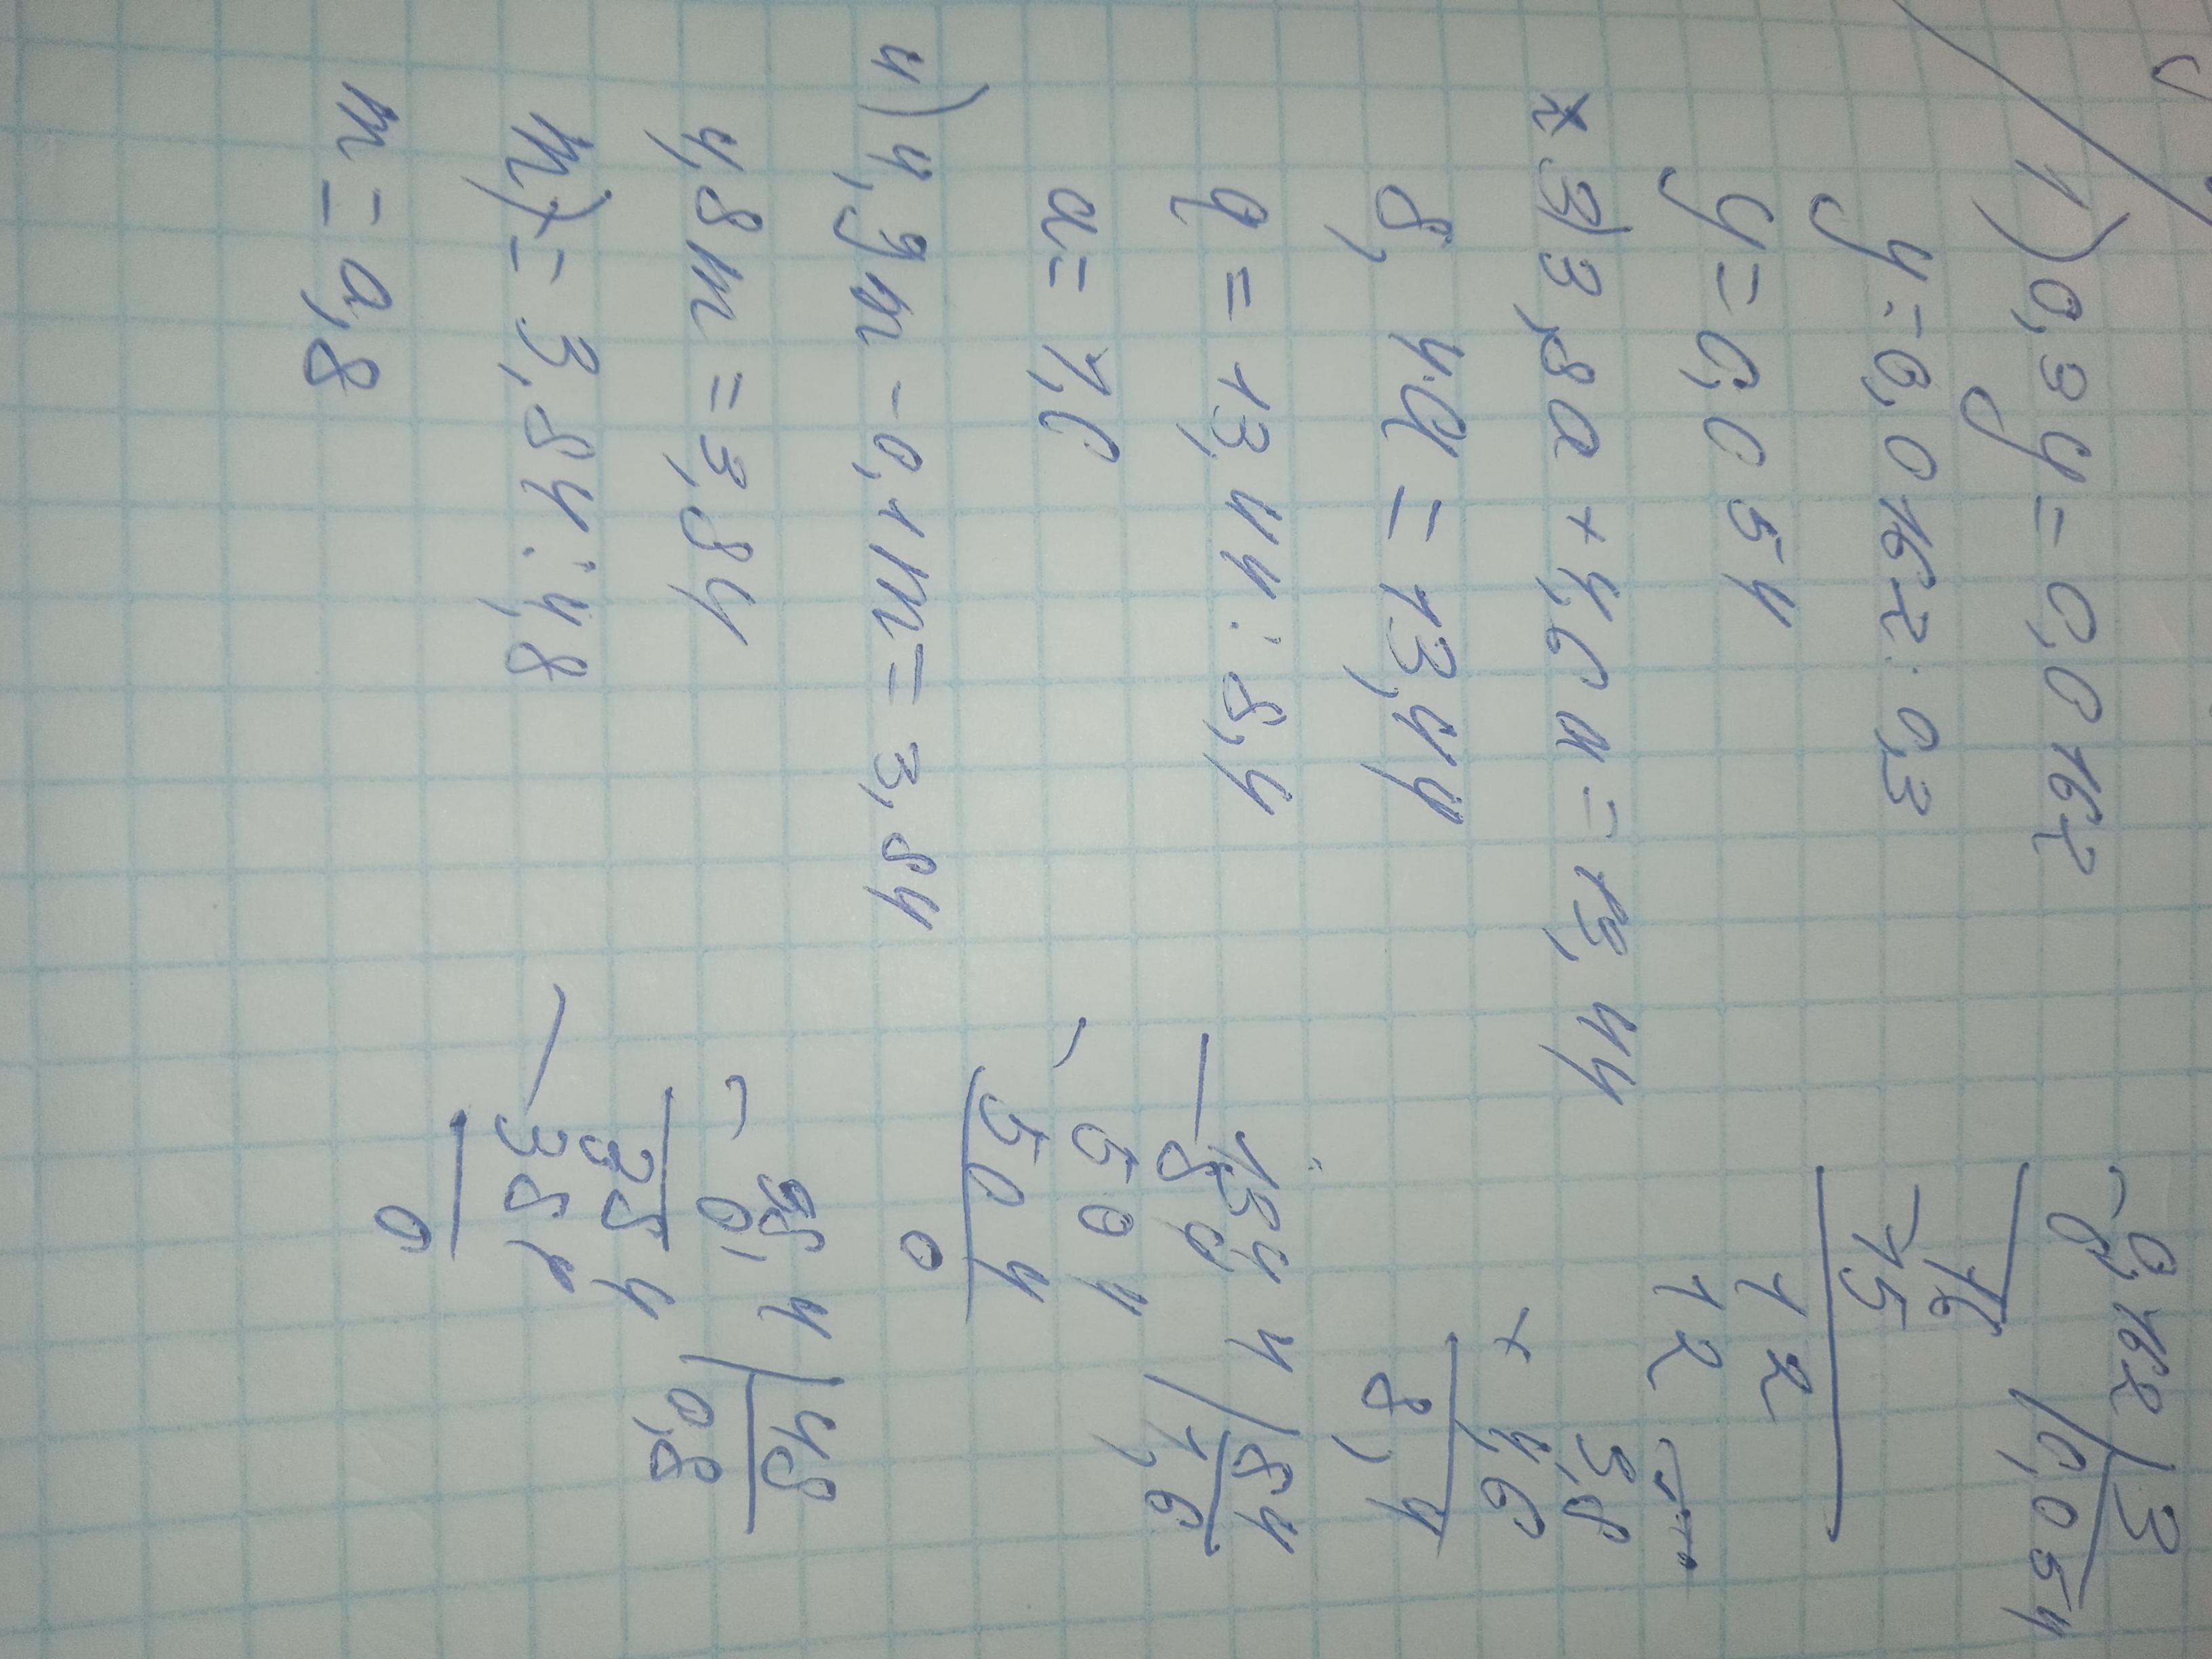 1) 0,3y = 0,0162
y = 0,0162 : 0,3
y = 0,054
3) 3,8a + 4,6a = 13,44
8,4a = 13,44
a = 13,44 : 8,4
a = 1,6
4) 4,9m - 0,1m = 3,84
4,8m = 3,84
m = 3,84 : 4,8
m = 0,8
0,162 | 3
0 | 0,054
16
15
12
12
3,8
+ 4,6
8,4
134 4 | 84
84 | 1,6
504
504
0
38,4 | 48
0 | 0,8
384
384
0